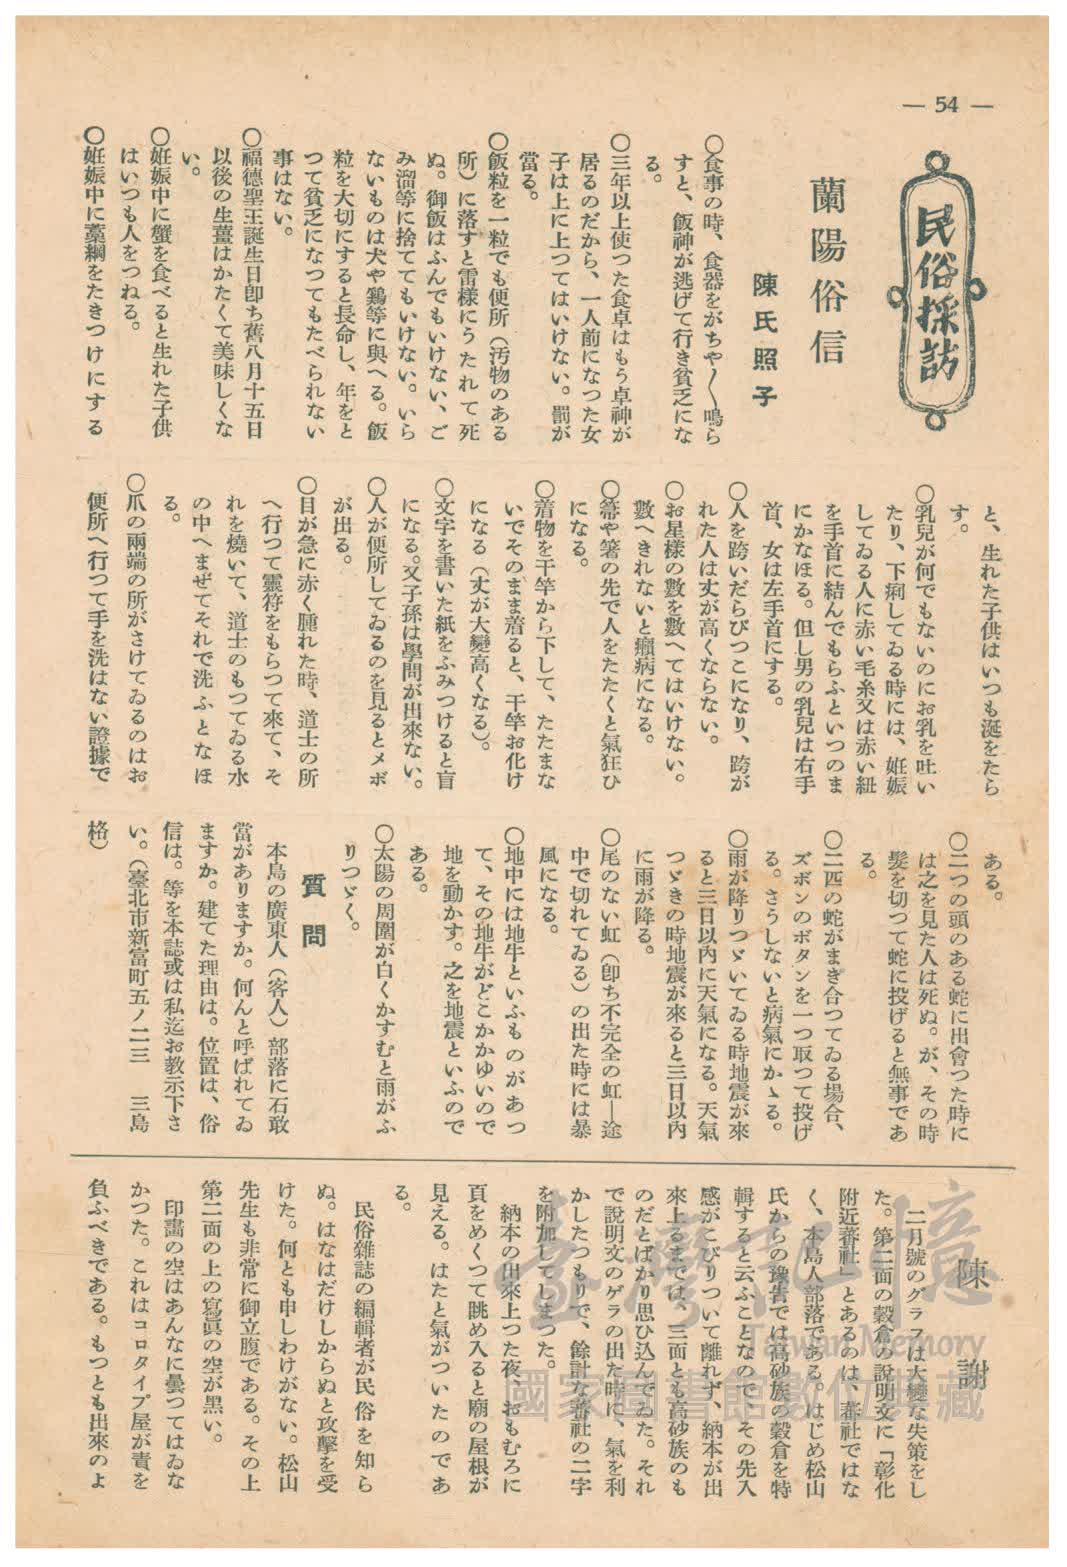 — 54 —
民俗採訪
蘭陽俗信
陳氏照子
○食事の時、食器をがちや〱鳴ら
すと、飯神が逃げて行き貧乏にな
る。
○三年以上使つた食卓はもう卓神が
居るのだから、一人前になつた女
子は上に上つてはいけない。罰が
當る。
○飯粒を一粒でも便所（汚物のある
所）に落すと雷樣にうたれて死
ぬ。御飯はふんでもいけない、ご
み溜等に捨ててもいけない。いら
ないものは犬や鷄等に與へる。飯
粒を大切にすると長命し、年をと
つて貧乏になつてもたべられない
事はない。
○福德聖王誕生日卽ち舊八月十五日
以後の生薑はかたくて美味しくな
い。
○姙娠中に蟹を食べると生れた子供
はいつも人をつねる。
○姙娠中に藁綱をたきつけにする
と、生れた子供はいつも涎をたら
す。
○乳兒が何でもないのにお乳を吐い
たり、下痢してゐる時には、姙娠
してゐる人に赤い毛糸又は赤い紐
を手首に結んでもらふといつのま
にかなほる。但し男の乳兒は右手
首、女は左手首にする。
○人を跨いだらびつこになり、跨が
れた人は丈が高くならない。
○お星樣の數を數へてはいけない。
數へきれないと癩病になる。
○箒や箸の先で人をたたくと氣狂ひ
になる。
○着物を干竿から下して、たたまな
いでそのまま着ると、干竿お化け
になる（丈が大變高くなる）。
○文字を書いた紙をふみつけると盲
になる。又子孫は學問が出來ない。
○人が便所してゐるのを見るとメボ
が出る。
○目が急に赤く腫れた時、道士の所
へ行つて靈符をもらつて來て、そ
れを燒いて、道士のもつてゐる水
の中へまぜてそれで洗ふとなほ
る。
○爪の兩端の所がさけてゐるのはお
便所へ行つて手を洗はない證據で
ある。
○二つの頭のある蛇に出會つた時に
は之を見た人は死ぬ。が、その時
髮を切つて蛇に投げると無事であ
る。
○二匹の蛇がまき合つてゐる場合、
ズボンのボタンを一つ取つて投げ
る。さうしないと病氣にかゝる。
○雨が降りつゞいてゐる時地震が來
ると三日以內に天氣になる。天氣
つゞきの時地震が來ると三日以內
に雨が降る。
○尾のない虹（卽ち不完全の虹―途
中で切れてゐる）の出た時には暴
風になる。
○地中には地牛といふものがあつ
て、その地牛がどこかかゆいので
地を動かす。之を地震といふので
ある。
○太陽の周圍が白くかすむと雨がふ
りつゞく。
質問
本島の廣東人（客人）部落に石敢
當がありますか。何んと呼ばれてゐ
ますか。建てた理由は。位置は、俗
信は。等を本誌或は私迄お敎示下さ
い。（臺北市新富町五ノ二三　三島
格）
陳謝
二月號のグラフは大變な失策をし
た。第二面の穀倉の說明文に「彰化
附近蕃社」とあるのは、蕃社ではな
く、本島人部落である。はじめ松山
氏からの豫吿では高砂族の穀倉を特
輯すると云ふことなので、その先入
感がこびりついて離れず、納本が出
來上るまでは、三面とも高砂族のも
のだとばかり思ひ込んでゐた。それ
で說明文のゲラの出た時に、氣を利
かしたつもりで、餘計な蕃社の二字
を附加してしまつた。
納本の出來上つた夜、おもむろに
頁をめくつて眺め入ると廟の屋根が
見える。はたと氣がついたのであ
る。
民俗雜誌の編輯者が民俗を知ら
ぬ。はなはだけしからぬと攻擊を受
けた。何とも申しわけがない。松山
先生も非常に御立腹である。その上
第二面の上の寫眞の空が黑い。
印畵の空はあんなに曇つてはゐな
かつた。これはコロタイプ屋が責を
負ふべきである。もつとも出來のよ
臺灣記憶
Taiwan Memory
國家圖書館數位典藏